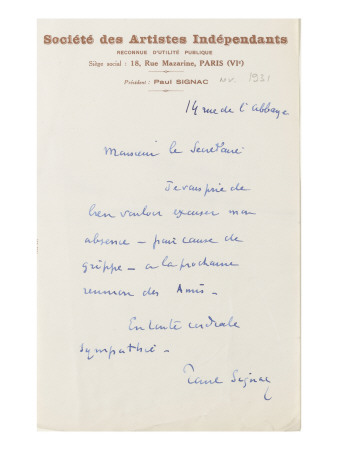 Société des Artistes Indépendants
RECONNUE D'UTILITÉ PUBLIQUE
Siège social : 18, Rue Mazarine, PARIS (VIᵉ)
Président : Paul SIGNAC
nv. 1931
14 rue de l'Abbaye
Monsieur le Secrétaire
Je vous prie de
bien vouloir excuser mon
absence – pour cause de
grippe – à la prochaine
reunion des Amis –
En toute cordiale
sympathie –
Paul Signac